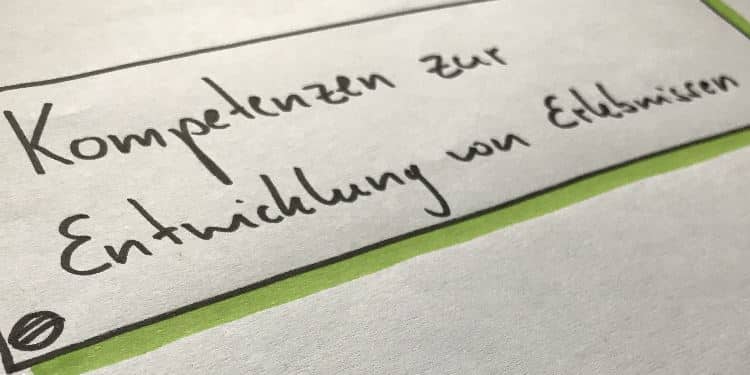 Kompetenzen zur
Entwicklung von Erlebnissen